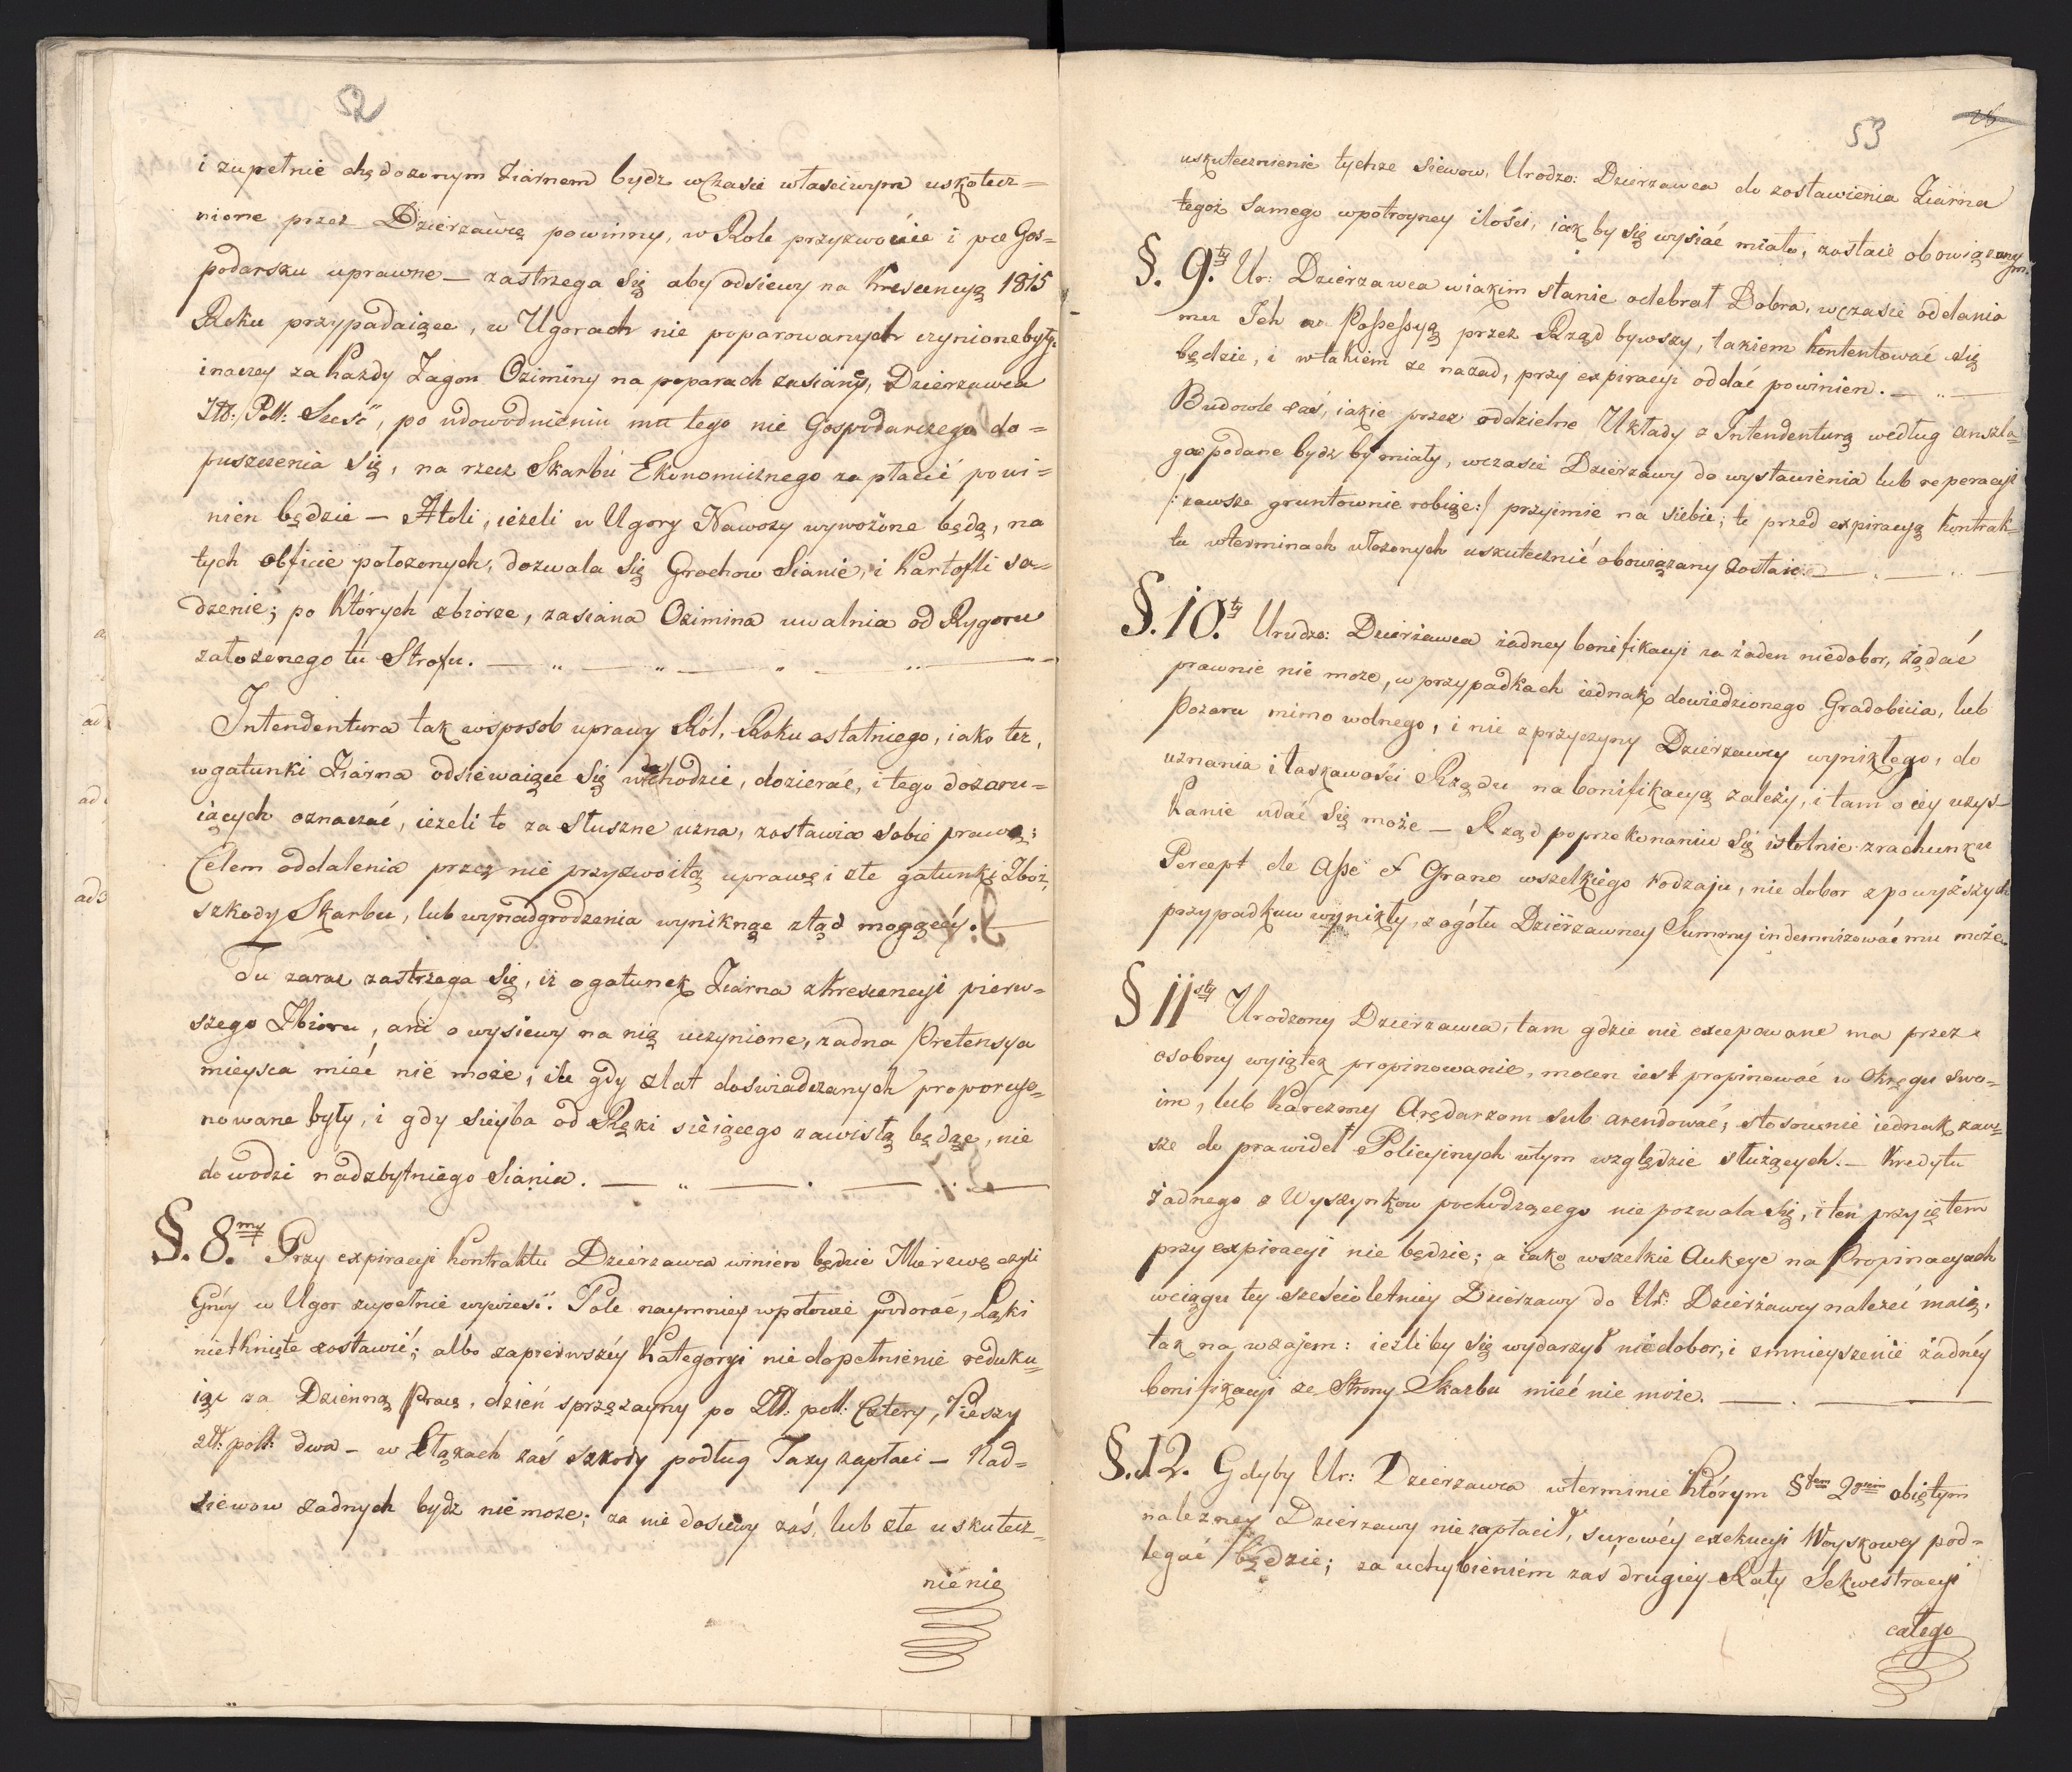 52
i zupełnie chędozonym Ziarnem bydz w Czasie własciwym uskutecz=
nione przez Dzierzawcę powinny, w Role przyzwoicie i po Gos=
podarsku uprawne — zastrzega się aby odsiewy na Krescencyą 1815
Roku przypadaiące, w Ugorach nie poparowanych czynione były.
inaczey za każdy Zagon Oziminy na poparach zasiany, Dzierzawca
Złł: Poll: Sześć, po udowodnieniu mu tego nie Gospodarczego do=
puszczenia się, na rzecz Skarbu Ekonomicznego zapłacić powi=
nien będzie — Atoli, ieżeli w Ugory Nawozy wywożone będą, na
tych obficie położonych, dozwala się Grochow Sianie, i Kartofli sa=
dzenie; po których zbiorze, zasiana Ozimina uwalnia od Rygoru
załozonego tu Strofu. — „ — „ — „ — „ —
Intendentura tak w sposob uprawy Ról, Roku ostatniego, iako też,
w gatunki Ziarna odsiewaiące się wchodzie, dozierać, i tego dozoru=
iących oznaczać, ieżeli to za słuszne uzna, zostawia sobie prawo;
Celem oddalenia przez nie przyzwoitą uprawę i złe gatunki Zboż,
szkody Skarbu, lub wynadgrodzenia wyniknąc ztąd mogącéy. —
Tu zaraz zastrzega się, iż o gatunek Ziarna z Krescencyi pierw=
szego Zbioru, ani o wysiewy na nią uczynione, żadna Pretensya
mieysca mieć nie może; ile gdy z lat doswiadczanych proporcyo=
nowane były, i gdy sieyba od Ręki sieiącego zawisłą będąc, nie
dowodzi nadzbytniego Siania. — „ — . — . —
§. 8.my Przy expiracyi Kontraktu Dzierzawca winien będzie Mierzwę czyli
Gnóy w Ugor zupełnie wywieść. Pole naymniey w połowie podorać, Łąki
nietknięte zostawić; albo za pierwszéy Kategoryi niedopełnienie reduku=
iąc za Dzienną Pracę, dzień sprzężayny po Złł: poll: Cztery, Pieszy
Złł: poll: dwa — w Łąkach zaś szkody podług Taxy zapłaci — Nad=
siewow żadnych bydz nie może; za nie dosiewy zaś, lub złe uskutecz=
nienie
53
26
uskutecznienie tychze Siewow, Urodzo: Dzierzawca do zostawienia Ziarna
tegoż samego w potroyney ilości, iak by się wysiać miało, zostaie obowiązanym.
§. 9.ty Ur: Dzierzawca w iakim stanie odebrał Dobra, w czasie oddania
mu Ich w Possessyą przez Rząd bywszy, takiem kontentować się
będzie, i w takiem ze nazad, przy expiracyi oddać powinien. — „ —
Budowle zaś, iakie przez oddzielne Układy z Intendenturą według anszla=
gow podane bydz by miały, w czasie Dzierzawy do wystawienia lub reperacyi
/: zawsze gruntownie robiąc :/ przyimie na siebie, te przed expiracyą Kontrak=
tu w terminach ułozonych uskutecznić obowiązany zostaie. — „ — „ —
§. 10.ty Urodzo: Dzierżawca żadney bonifikacyi za żaden niedobor, żądać
prawnie nie może, w przypadkach iednak dowiedzionego Gradobicia, lub
Pożaru mimo wolnego, i nie z przyczyny Dzierżawcy wynikłego, do
uznania i łaskawości Rządu na bonifikacyą zależy, i tam o iey uzys=
kanie udać się może — Rząd po przekonaniu się istotnie z rachunku
Percept de Asse et Grano wszelkiego rodzaju, nie dobor z powyższych
przypadkuw wynikły, z ogółu Dzierżawney Summy indemnizować mu może.
§ 11sty Urodzony Dzierżawca, tam gdzie nie excepowane ma przez
osobny wyiątek propinowanie, mocen iest propinować w Okręgu swo=
im, lub Karczmy Arędarzom sub arendować, stosownie iednak zaw=
sze do prawideł Policyinych w tym względzie służących. — Kredytu
żadnego z Wyszynkow pochodzącego nie pozwala się, i ten przyiętem
przy expiracyi nie będzie; a iako wszelkie Aukcye na Propinacyach
w ciągu tey sześcioletniey Dzierżawy do Ur: Dzierżawcy należeć maią,
tak na wzajem: ieżliby się wydarzył niedobor, i zmnieyszenie żadnéy
bonifikacyi ze Strony Skarbu mieć nie może. — . —
§. 12. Gdyby Ur: Dzierzawca w terminie którym §fem 2gim obiętym
należney Dzierzawy nie zapłacił, surowéy exekucyi Woyskowey pod=
legać będzie; za uchybieniem zaś drugiey Raty Sekwestracyi
całego